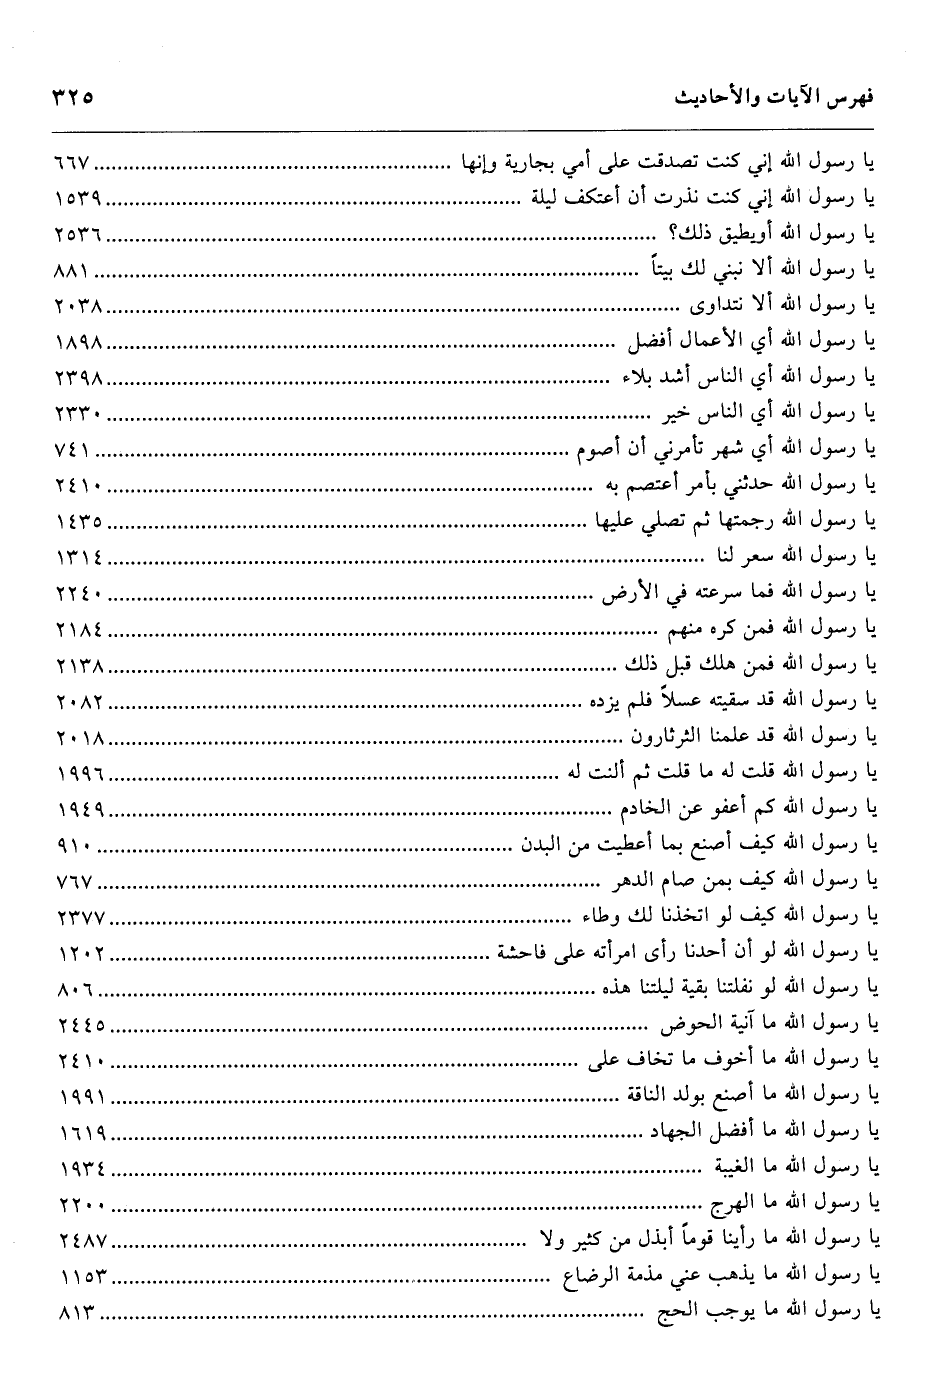 فهرس الآيات والأحاديث ٣٢٥
يا رسول الله إني كنت تصدقت على أمي بجارية وإنها ..... ٦٦٧
يا رسول الله إني كنت نذرت أن أعتكف ليلة ..... ١٥٣٩
يا رسول الله أويطيق ذلك؟ ..... ٢٥٣٦
يا رسول الله ألا نبني لك بيتاً ..... ٨٨١
يا رسول الله ألا نتداوى ..... ٢٠٣٨
يا رسول الله أي الأعمال أفضل ..... ١٨٩٨
يا رسول الله أي الناس أشد بلاء ..... ٢٣٩٨
يا رسول الله أي الناس خير ..... ٢٣٣٠
يا رسول الله أي شهر تأمرني أن أصوم ..... ٧٤١
يا رسول الله حدثني بأمر أعتصم به ..... ٢٤١٠
يا رسول الله رجمتها ثم تصلي عليها ..... ١٤٣٥
يا رسول الله سعر لنا ..... ١٣١٤
يا رسول الله فما سرعته في الأرض ..... ٢٢٤٠
يا رسول الله فمن كره منهم ..... ٢١٨٤
يا رسول الله فمن هلك قبل ذلك ..... ٢١٣٨
يا رسول الله قد سقيته عسلاً فلم يزده ..... ٢٠٨٢
يا رسول الله قد علمنا الثرثارون ..... ٢٠١٨
يا رسول الله قلت له ما قلت ثم ألنت له ..... ١٩٩٦
يا رسول الله كم أعفو عن الخادم ..... ١٩٤٩
يا رسول الله كيف أصنع بما أعطيت من البدن ..... ٩١٠
يا رسول الله كيف بمن صام الدهر ..... ٧٦٧
يا رسول الله كيف لو اتخذنا لك وطاء ..... ٢٣٧٧
يا رسول الله لو أن أحدنا رأى امرأته على فاحشة ..... ١٢٠٢
يا رسول الله لو نفلتنا بقية ليلتنا هذه ..... ٨٠٦
يا رسول الله ما آنية الحوض ..... ٢٤٤٥
يا رسول الله ما أخوف ما تخاف على ..... ٢٤١٠
يا رسول الله ما أصنع بولد الناقة ..... ١٩٩١
يا رسول الله ما أفضل الجهاد ..... ١٦١٩
يا رسول الله ما الغيبة ..... ١٩٣٤
يا رسول الله ما الهرج ..... ٢٢٠٠
يا رسول الله ما رأينا قوماً أبذل من كثير ولا ..... ٢٤٨٧
يا رسول الله ما يذهب عني مذمة الرضاع ..... ١١٥٣
يا رسول الله ما يوجب الحج ..... ٨١٣